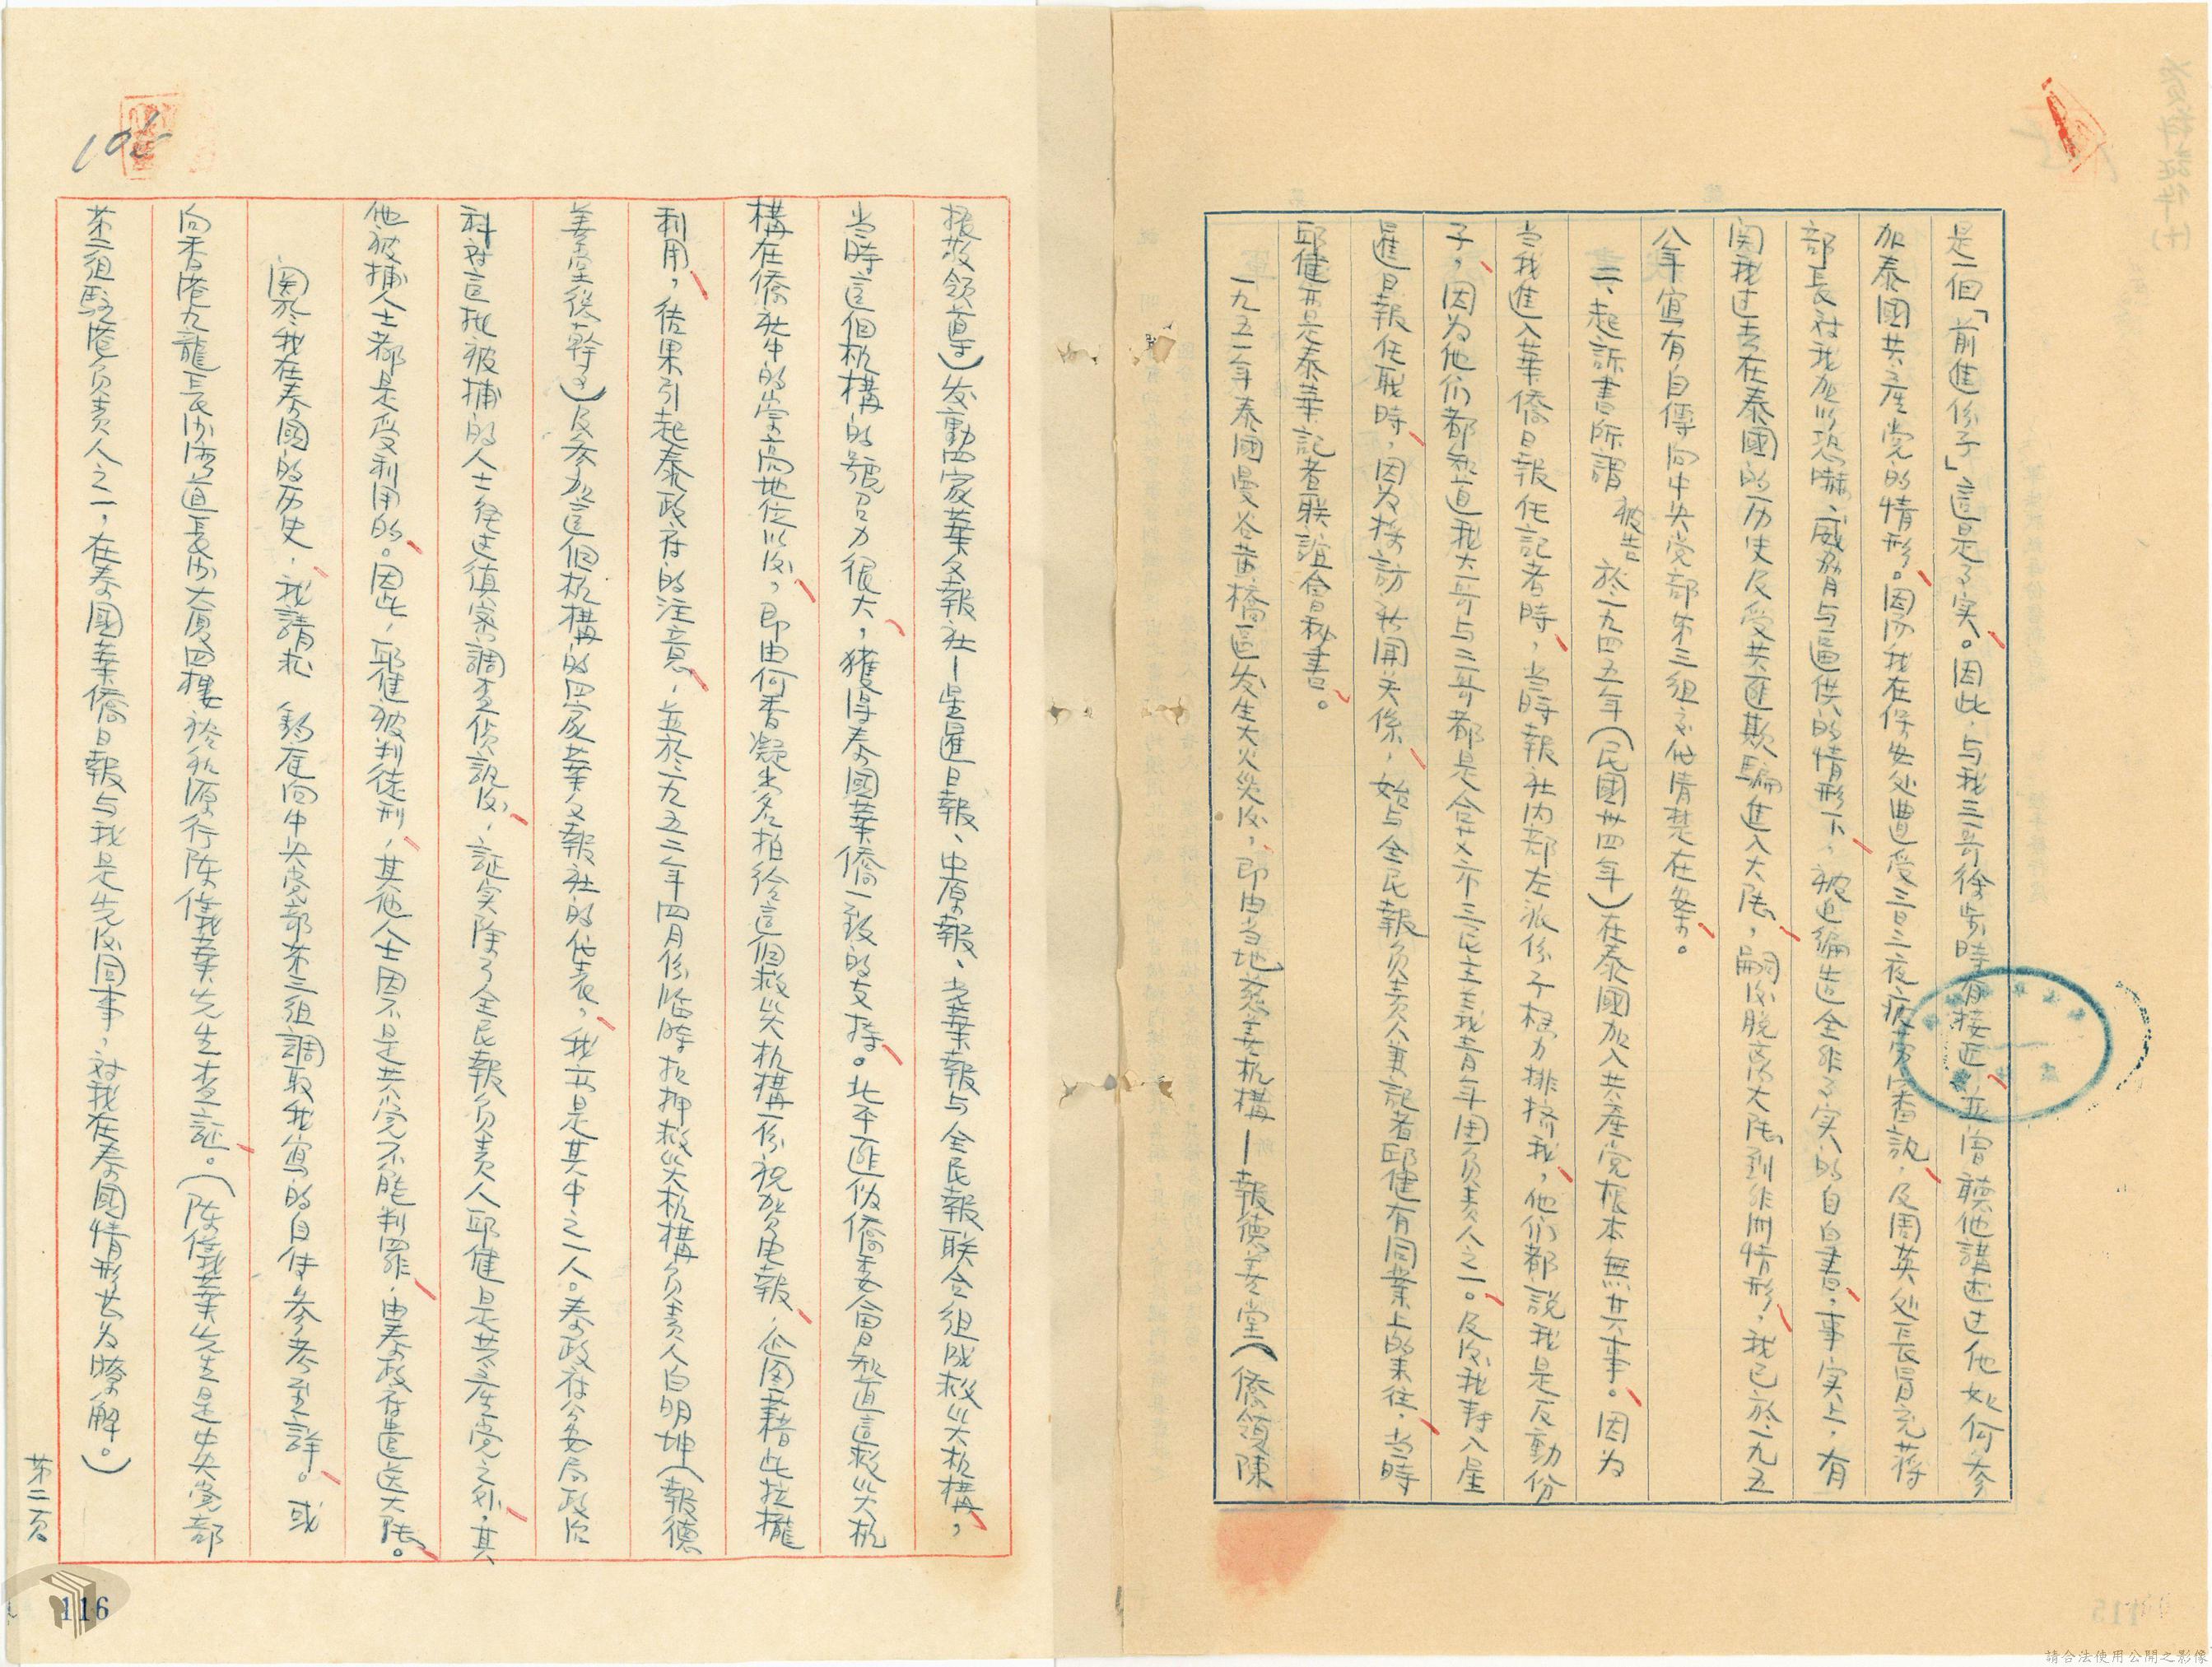 是一個「前進份子」這是事实。因此,与我三哥徐步時有接近,並曾聽他講述过他如何参
加泰國共產党的情形。因为我在保安处遭受三日三夜疲劳審訊,及周英处長冒充蒋
部長对我加以恐嚇、威脅与逼供的情形下,被迫編造全非事实的自白書,事实上,有
関我过去在泰國的历史及受共匪欺騙進入大陸,嗣後脫离大陸到非洲情形,我已於一九五
八年寫有自傳向中央党部第三組交代清楚在案。
二、起訴書所謂被告於一九四五年(民國卅四年)在泰國加入共產党根本無其事。因为
当我進入華僑日報任記者時,当時報社内部左派份子极力排挤我,他们都說我是反動份
子,因为他们都知道我大哥与三哥都是合艾市三民主義青年団负责人之一。及後我轉入星
暹日報任职時,因为採訪新聞关係,始与全民報负责人兼記者邱健有同業上的来往,当時
邱健亦是泰華記者联誼會秘書。
一九五一年泰國曼谷黄橋區发生大火災後,即由当地慈善机構—報德善堂(僑領陳
振敬領導)发動四家華文報社—星暹日報、中原報、光華報与全民報联合組成救災机構,
当時這個机構的號召力很大,獲得泰國華僑一致的支持。北平匪伪僑委會知道這救災机
構在僑社中的崇高地位以後,即由何香凝出名拍给這個救災机構一份祝贺电報,企图藉此拉攏
利用,结果引起泰政府的注意,並於一九五二年四月份临時扣押救災机構负责人白明坤(報德
善堂後幹事)及参加這個机構的四家華文報社的代表,我亦是其中之一人。泰政府公安局政治
科对這批被捕的人士经过鎮密調查偵訊後,証实除了全民報负责人邱健是共產党之外,其
他被捕人士都是受利用的。因此,邱健被判徒刑,其他人士因不是共党不能判罪,由泰政府遣送大陸。
関於我在泰國的历史,我請求 鈞座向中央党部第三組調取我寫的自传参考至詳。或
向香港九龍長沙湾道長沙大厦四樓裕新源行陈偉義先生查証。(陈偉義先生是中央党部
第三組駐港负责人之一,在泰國華僑日報与我是先後同事,对我在泰國情形甚为瞭解。)
第二頁
116
請合法使用公開之影像